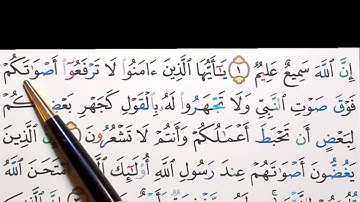 إِنَّ ٱللَّهَ سَمِيعٌ عَلِيمٌ ١ يَـٰٓأَيُّهَا ٱلَّذِينَ ءَامَنُوا۟ لَا تَرْفَعُوٓا۟ أَصْوَٰتَكُمْ
فَوْقَ صَوْتِ ٱلنَّبِىِّ وَلَا تَجْهَرُوا۟ لَهُۥ بِٱلْقَوْلِ كَجَهْرِ بَعْضِكُمْ
لِبَعْضٍ أَن تَحْبَطَ أَعْمَـٰلُكُمْ وَأَنتُمْ لَا تَشْعُرُونَ ٢ إِنَّ ٱلَّذِينَ
يَغُضُّونَ أَصْوَٰتَهُمْ عِندَ رَسُولِ ٱللَّهِ أُو۟لَـٰٓئِكَ ٱلَّذِينَ ٱمْتَحَنَ ٱللَّهُ